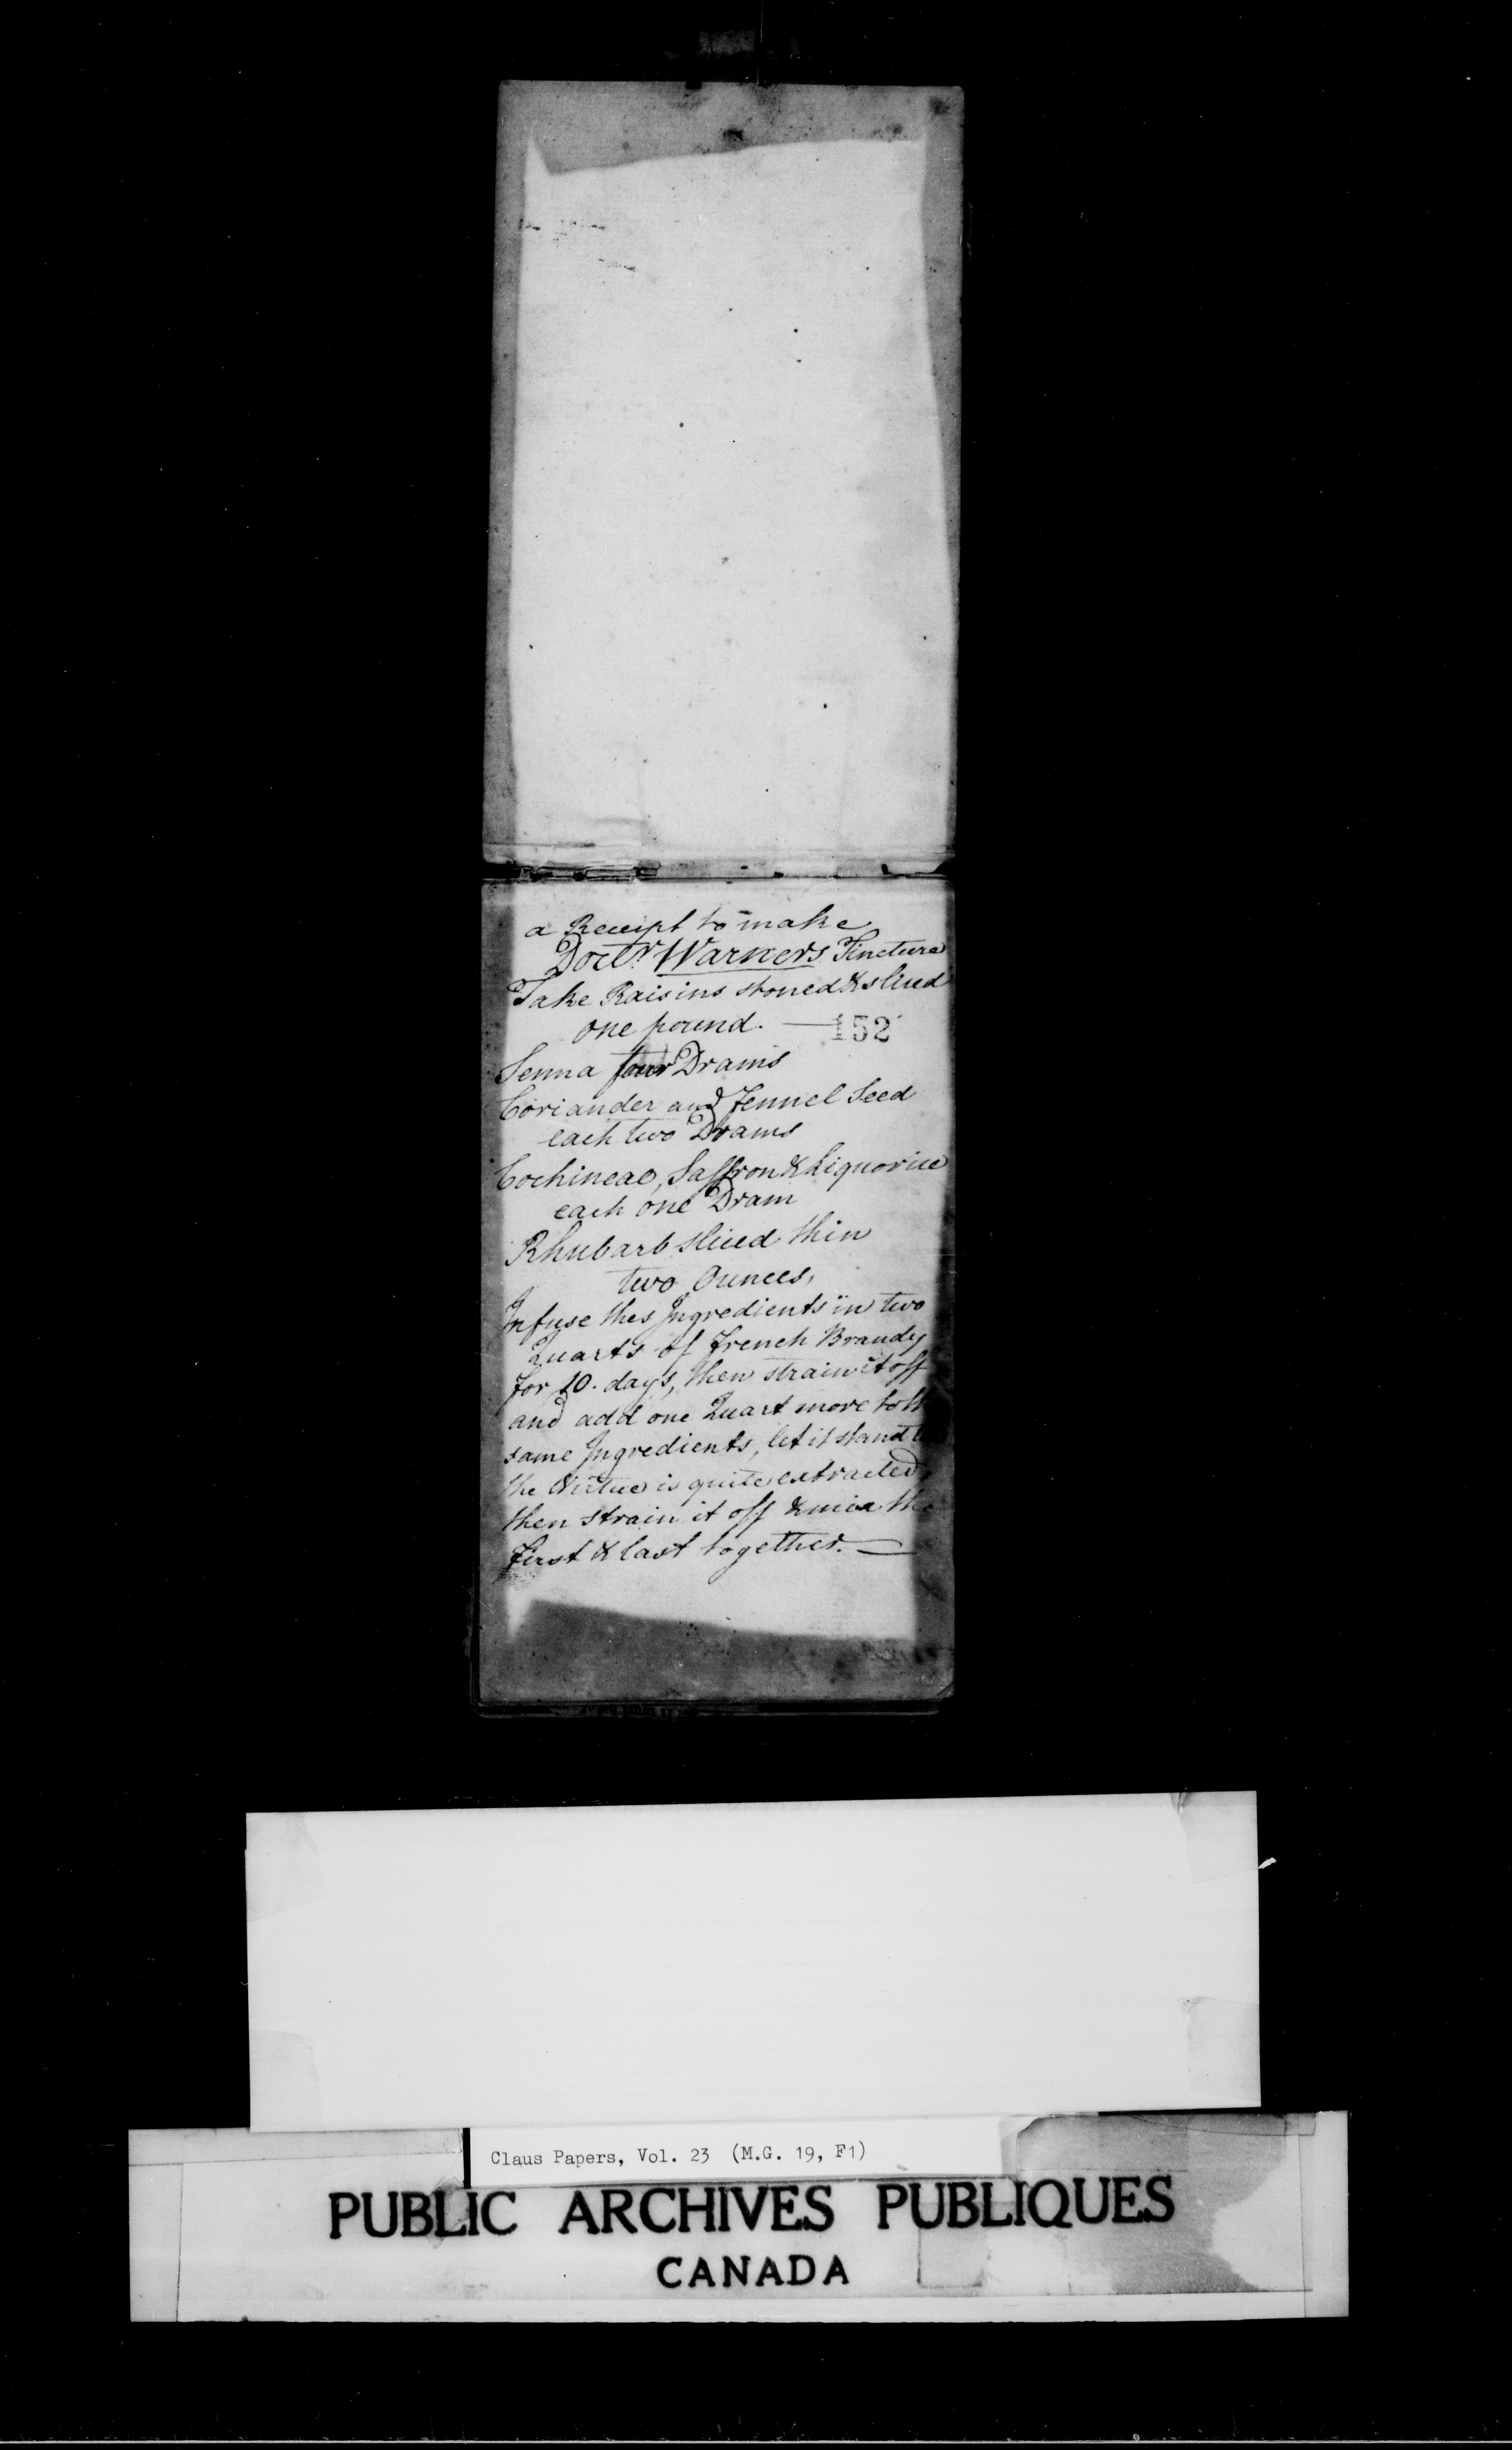 a Receipt to make
Doctr. Warners Tincture
Take Raisins stoned & sliced
one pound. —
152
Senna four Drams
Coriander and Fennel Seed
each two Drams
Cochineal, Saffron & Liquorice
each one Dram
Rhubarb sliced thin
two Ounces,
Infuse thes Ingredients in two
Quarts of French Brandy
for 10. days, then strain it off
and add one Quart more to th
same Ingredients, let it stand
the Virtue is quite extracted,
then strain it off & mix the
first & last together. —
Claus Papers, Vol. 23 (M.G. 19, F1)
PUBLIC ARCHIVES PUBLIQUES
CANADA